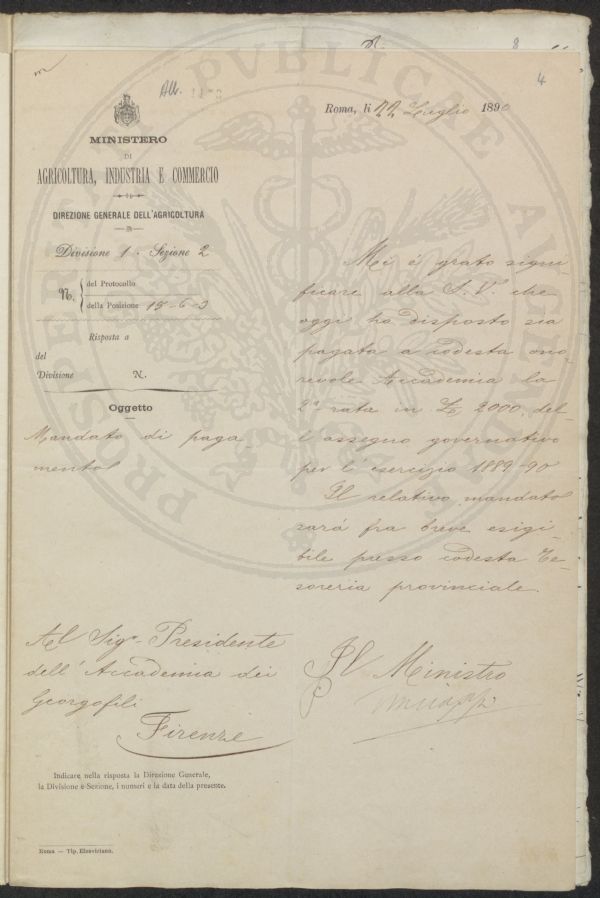 8
4
All.
Roma, li 22 Luglio 1890
MINISTERO
DI
AGRICOLTURA, INDUSTRIA E COMMERCIO
DIREZIONE GENERALE DELL'AGRICOLTURA
Divisione 1. Sezione 2
N. del Protocollo
della Posizione 15-6-3
Risposta a
del
Divisione N.
Oggetto
Mandato di paga
mento
Mi è grato signi-
ficare alla S. V. che
oggi ho disposto sia
pagata a codesta ono-
revole Accademia la
2ª rata in L. 2000 del-
l'assegno governativo
per l'esercizio 1889-90
Il relativo mandato
sarà fra breve esigi-
bile presso codesta Te-
soreria provinciale.
Al Sigr. Presidente
dell'Accademia dei
Georgofili
Firenze
Il Ministro
Indicare nella risposta la Direzione Generale,
la Divisione e Sezione, i numeri e la data della presente.
Roma — Tip. Elzeviriana.
PROSPERITATI PVBLICAE AVGENDAE